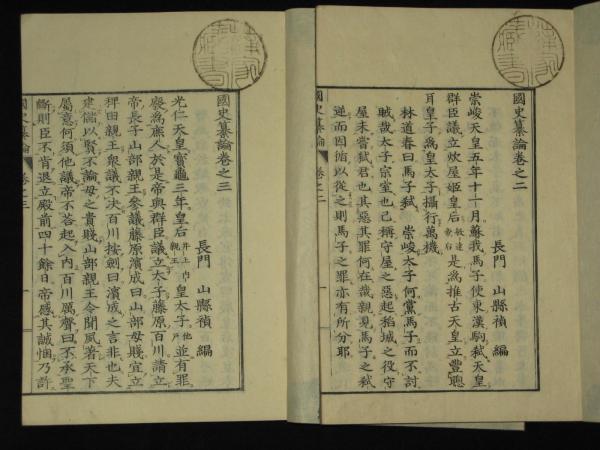 國史纂論卷之二
長門 山縣禎 編
崇峻天皇五年十一月蘇我馬子使東漢駒弒天皇
群臣議立炊屋姬皇后敏達皇后是為推古天皇立豐聰
耳皇子為皇太子攝行萬機
林道春曰馬子弒 崇峻太子何黨馬子而不討
賊哉太子宗室也已稱守屋之惡起稻城之役守
屋未嘗弒君也其惡其罪何在哉親見馬子之弒
逆而因循以從之則馬子之罪亦有所分耶
國史纂論卷之三
長門 山縣禎 編
光仁天皇寶龜三年皇后井上內親王皇太子他戶並有罪
廢為庶人於是帝與群臣議立太子藤原百川請立
帝長子山部親王參議藤原濱成曰山部母賤宜立
稗田親王眾議不決百川按劍曰濱成之言非也夫
建儲以賢不論母之貴賤山部親王令聞風著天下
屬意何須他議帝不荅起入內百川厲聲曰不承聖
斷則臣不肯退立殿前四十餘日帝感其誠悃乃許
國史纂論 卷之三